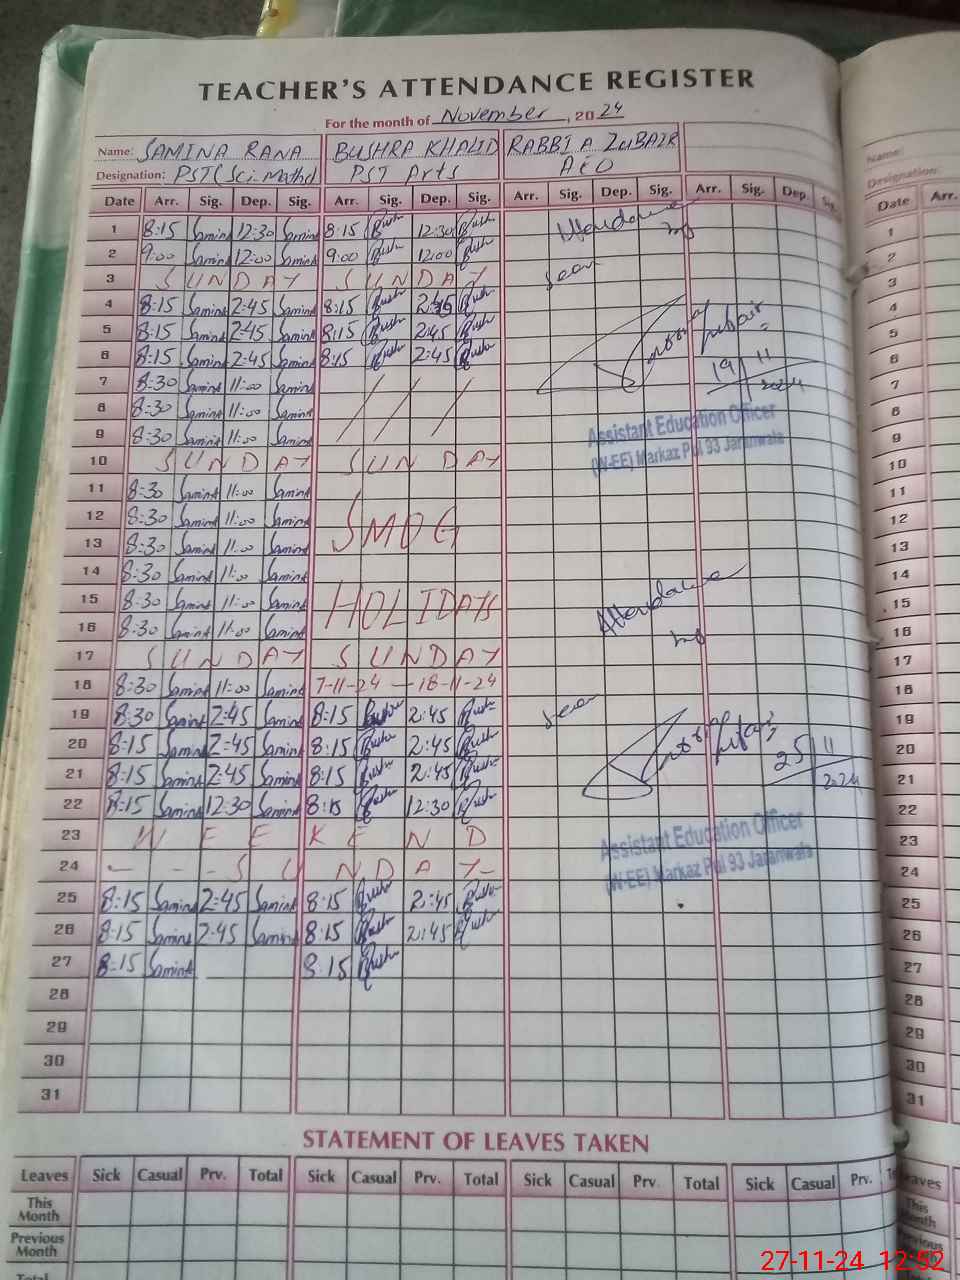 TEACHER'S ATTENDANCE REGISTER
For the month of November, 2024
Name: SAMINA RANA BUSHRA KHALID RABBIA ZUBAIR
Designation: PST(Sci-Math) PST Arts AEO
Date Arr. Sig. Dep. Sig. Arr. Sig. Dep. Sig. Arr. Sig. Dep. Sig. Arr. Sig. Dep. Sig.
1 8:15 Samina 12:30 Samina 8:15 Bush 12:30 Bush Attendance
2 9:00 Samina 12:00 Samina 9:00 Bush 12:00 Bush
3 SUNDAY SUNDAY seen
4 8:15 Samina 2:45 Samina 8:15 Bush 2:45 Bush
5 8:15 Samina 2:45 Samina 8:15 Bush 2:45 Bush
6 8:15 Samina 2:45 Samina 8:15 Bush 2:45 Bush 19/11
7 8:30 Samina 11:00 Samina 2024
8 8:30 Samina 11:00 Samina
9 8:30 Samina 11:00 Samina Assistant Education Officer
10 SUNDAY SUNDAY (W-EE) Markaz Pul 93 Jaranwala
11 8:30 Samina 11:00 Samina
12 8:30 Samina 11:00 Samina SMOG
13 8:30 Samina 11:00 Samina
14 8:30 Samina 11:00 Samina
15 8:30 Samina 11:00 Samina HOLIDAYS Attendance
16 8:30 Samina 11:00 Samina
17 SUNDAY SUNDAY
18 8:30 Samina 11:00 Samina 7-11-24 — 18-11-24
19 8:30 Samina 2:45 Samina 8:15 Bush 2:45 Bush seen
20 8:15 Samina 2:45 Samina 8:15 Bush 2:45 Bush 25/11
21 8:15 Samina 2:45 Samina 8:15 Bush 2:45 Bush 2024
22 8:15 Samina 12:30 Samina 8:15 Bush 12:30 Bush
23 WEEKEND Assistant Education Officer
24 - - - SUNDAY- (W-EE) Markaz Pul 93 Jaranwala
25 8:15 Samina 2:45 Samina 8:15 Bush 2:45 Bush
26 8:15 Samina 2:45 Samina 8:15 Bush 2:45 Bush
27 8:15 Samina 8:15 Bush
28
29
30
31
STATEMENT OF LEAVES TAKEN
Leaves Sick Casual Prv. Total Sick Casual Prv. Total Sick Casual Prv. Total Sick Casual Prv.
This Month
Previous Month
Total
Name:
Designation:
Date Arr.
1
2
3
4
5
6
7
8
9
10
11
12
13
14
15
16
17
18
19
20
21
22
23
24
25
26
27
28
29
30
31
27-11-24 12:52